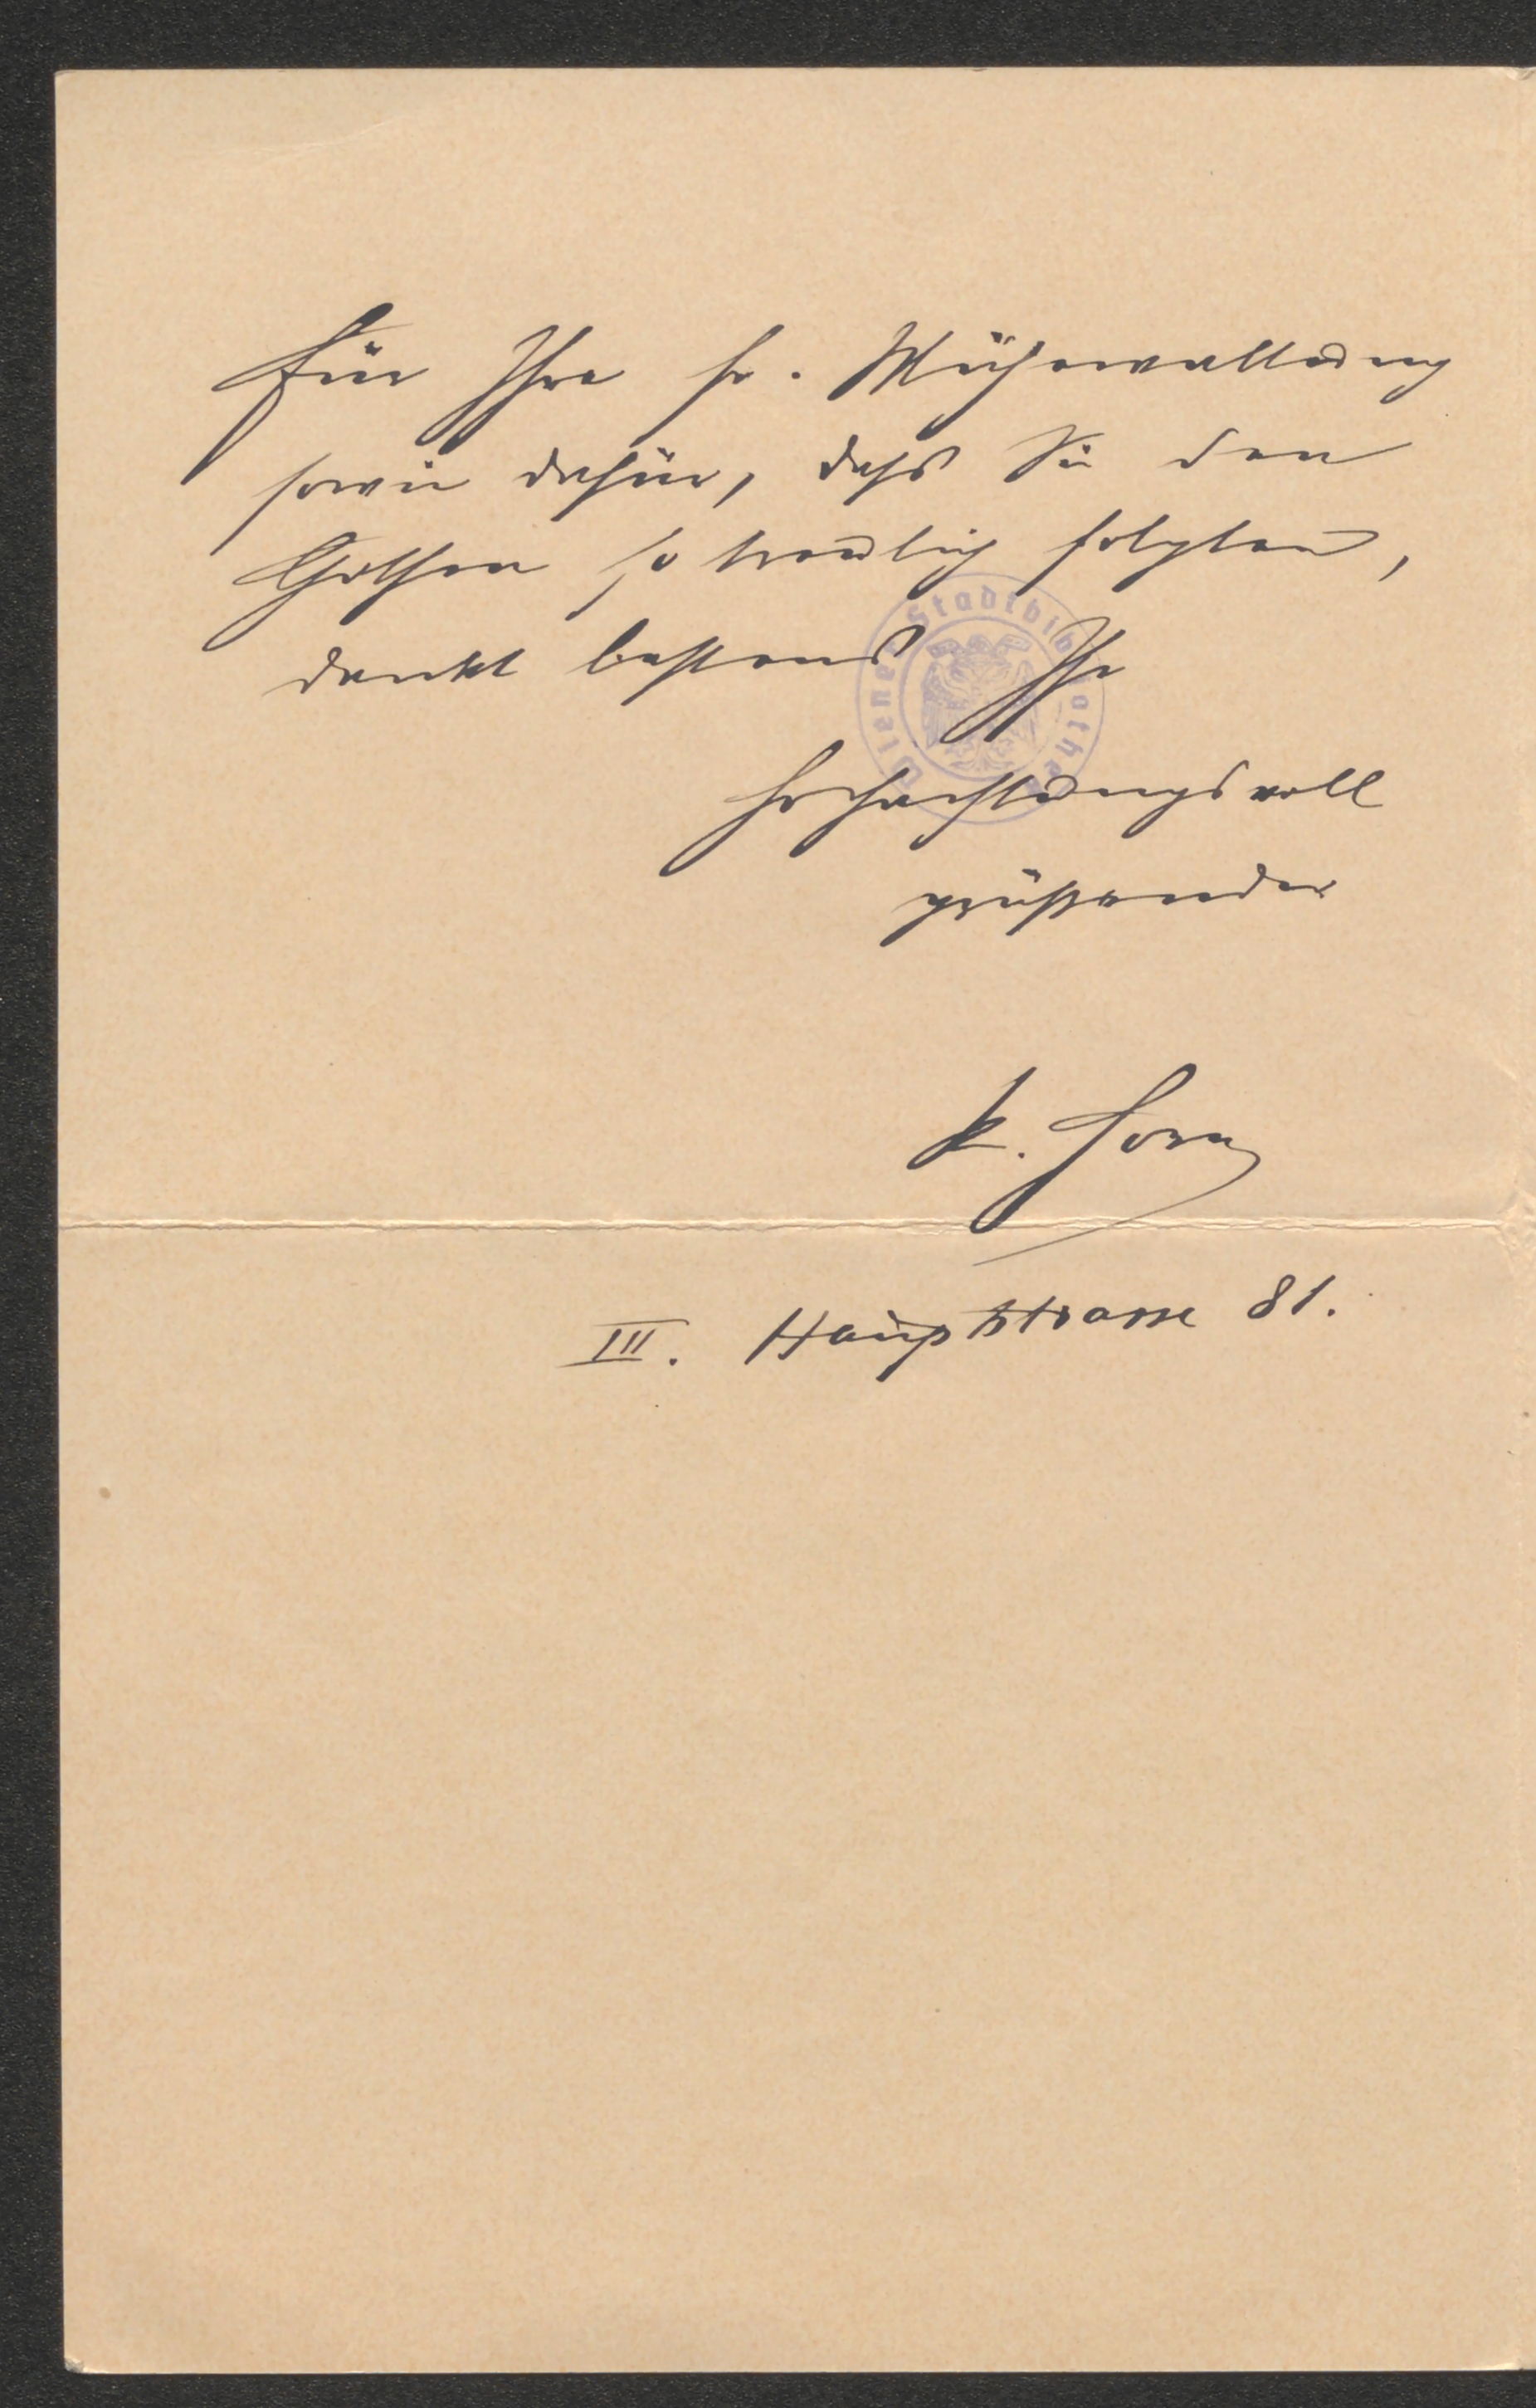 Für Ihre fr. Mühewaltung
sowie dafür, dass Sie den
Gothen so treulich folgten,
dankt bestens Ihr
hochachtungsvoll
grüßender
K. Horn
III. Hauptstrasse 81.
Wiener Stadtbibliothek